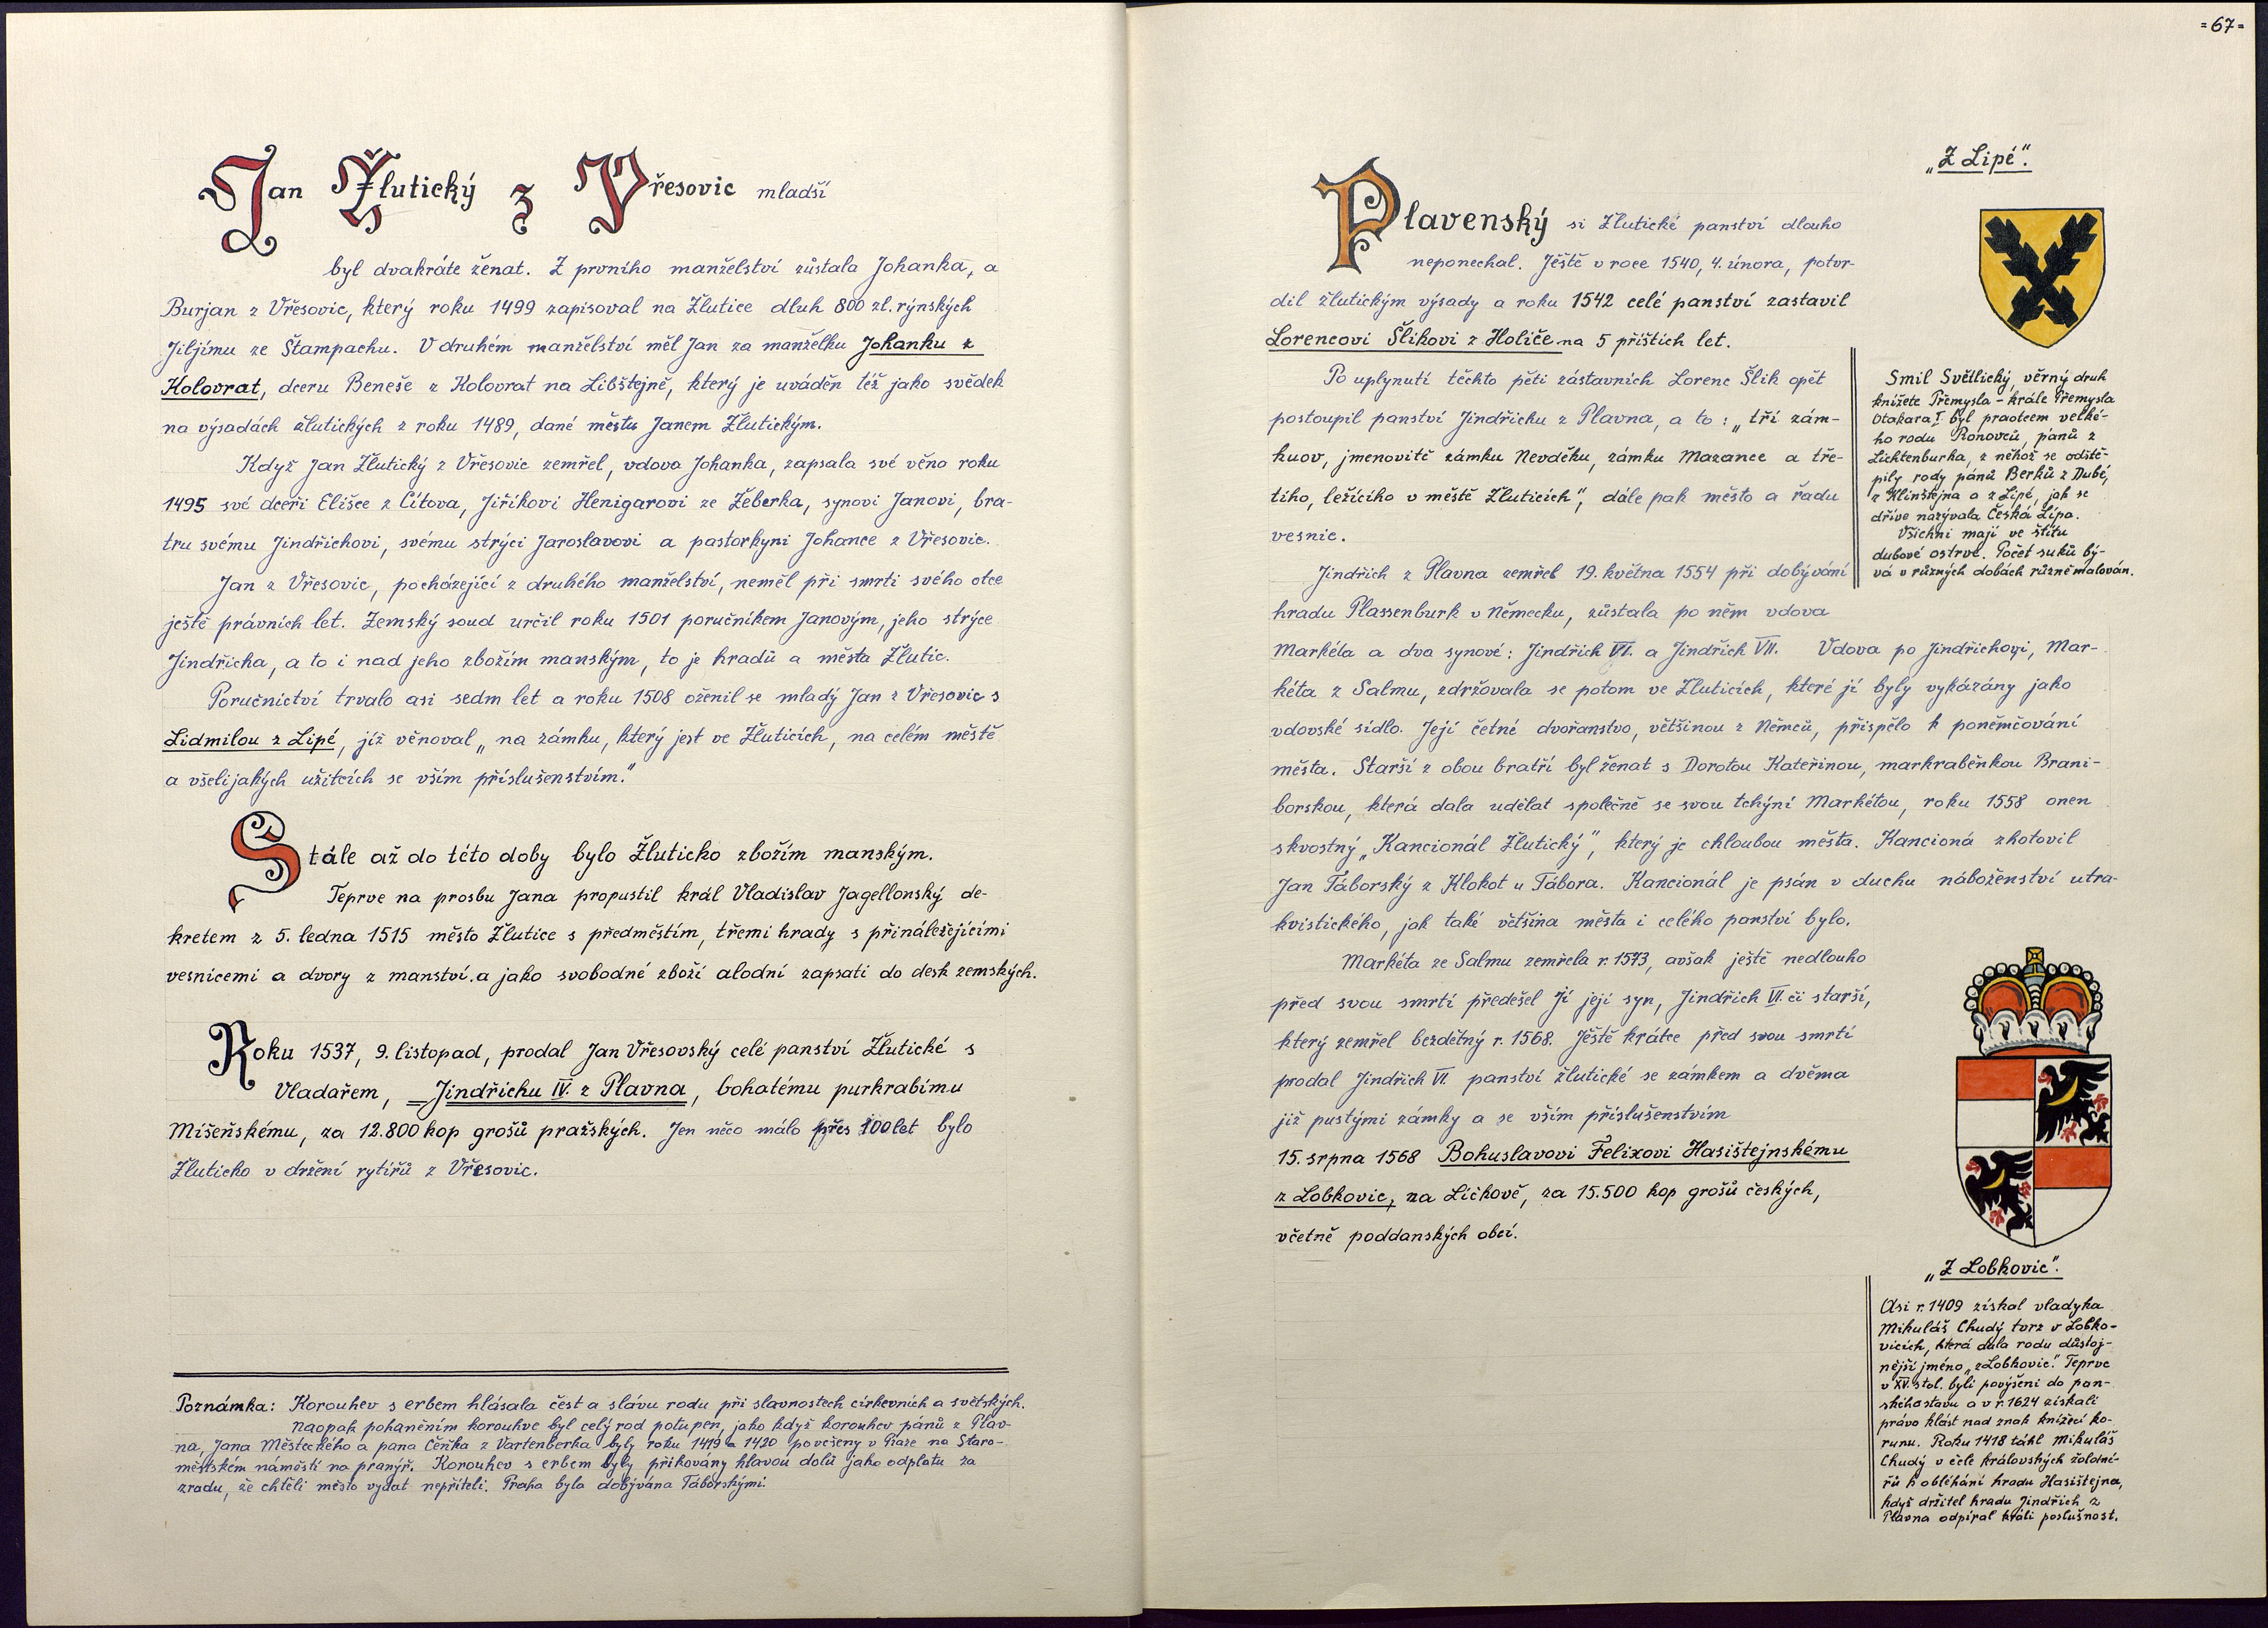 Jan Žlutický z Vřesovic mladší
byl dvakráte ženat. Z prvního manželství zůstala Johanka, a
Burjan z Vřesovic, který roku 1499 zapisoval na Žlutice dluh 800 zl. rýnských
Jiljímu ze Štampachu. V druhém manželství měl Jan za manželku Johanku z
Kolovrat, dceru Beneše z Kolovrat na Libštejně, který je uváděn též jako svědek
na výsadách žlutických z roku 1489, dané městu Janem Žlutickým.
Když Jan Žlutický z Vřesovic zemřel, vdova Johanka, zapsala své věno roku
1495 své dceři Elišce z Cítova, Jiříkovi Henigarovi ze Žeberka, synovi Janovi, bra-
tru svému Jindřichovi, svému strýci Jaroslavovi a pastorkyni Johance z Vřesovic.
Jan z Vřesovic, pocházející z druhého manželství, neměl při smrti svého otce
ještě právních let. Zemský soud určil roku 1501 poručníkem Janovým, jeho strýce
Jindřicha, a to i nad jeho zbožím manským, to je hradů a města Žlutic.
Poručnictví trvalo asi sedm let a roku 1508 oženil se mladý Jan z Vřesovic s
Lidmilou z Lipé, jíž věnoval „na zámku, který jest ve Žluticích, na celém městě
a všelijakých užitcích se vším příslušenstvím."
Stále až do této doby bylo Žluticko zbožím manským.
Teprve na prosbu Jana propustil král Vladislav Jagellonský de-
kretem z 5. ledna 1515 město Žlutice s předměstím, třemi hrady s přináležejícími
vesnicemi a dvory z manství.a jako svobodné zboží alodní zapsati do desk zemských.
Roku 1537, 9. listopad, prodal Jan Vřesovský celé panství Žlutické s
Vladařem, Jindřichu IV. z Plavna, bohatému purkrabímu
Míšeňskému, za 12.800 kop grošů pražských. Jen něco málo přes 100 let bylo
Žluticko v držení rytířů z Vřesovic.
Poznámka: Korouhev s erbem hlásala čest a slávu rodu při slavnostech církevních a světských.
Naopak pohaněním korouhve byl celý rod potupen, jako když korouhev pánů z Plav-
na, Jana Městeckého a pana Čeňka z Vartenberka byly roku 1419 a 1420 pověšeny v Praze na Staro-
městském náměstí na pranýř. Korouhev s erbem byly přikovány hlavou dolů jako odplatu za
zradu, že chtěli město vydat nepříteli. Praha byla dobývána Táborskými.
=67=
Plavenský si Žlutické panství dlouho
neponechal. Jěště v roce 1540, 4. února, potvr-
dil žlutickým výsady a roku 1542 celé panství zastavil
Lorencovi Šlikovi z Holiče na 5 příštích let.
Po uplynutí těchto pěti zástavních Lorenc Šlik opět
postoupil panství Jindřichu z Plavna, a to: „tří zám-
kuov, jmenovitě zámku Nevděku, zámku Mazance a tře-
tího, ležícího v městě Žluticích", dále pak město a řadu
vesnic.
Jindřich z Plavna zemřel 19. května 1554 při dobývání
hradu Plassenburk v Německu, zůstala po něm vdova
Markéta a dva synové: Jindřich VI. a Jindřich VII. Vdova po Jindřichovi, Mar-
kéta z Salmu, zdržovala se potom ve Žluticích, které jí byly vykázány jako
vdovské sídlo. Její četné dvořanstvo, většinou z Němců, přispělo k poněmčování
města. Starší z obou bratří byl ženat s Dorotou Kateřinou, markraběnkou Brani-
borskou, která dala udělat společně se svou tchýní Markétou, roku 1558 onen
skvostný „Kancionál Žlutický", který je chloubou města. Kancioná zhotovil
Jan Táborský z Klokot u Tábora. Kancionál je psán v duchu náboženství utra-
kvistického, jak také většina města i celého panství bylo.
Markéta ze Salmu zemřela r. 1573, avšak ještě nedlouho
před svou smrtí předešel jí její syn, Jindřich VI. či starší,
který zemřel bezdětný r. 1568. Jěště krátce před svou smrtí
prodal Jindřich VI. panství žlutické se zámkem a dvěma
již pustými zámky a se vším příslušenstvím
15. srpna 1568 Bohuslavovi Felixovi Hasištejnskému
z Lobkovic, na Líčkově, za 15.500 kop grošů českých,
včetně poddanských obcí.
„Z Lipé".
Smil Světlický, věrný druh
knížete Přemysla - krále Přemysla
Otakara I. byl praotcem velké-
ho rodu Ronovců, pánů z
Lichtenburka, z něhož se odště-
pily rody pánů Berků z Dubé,
z Klinštejna a z Lipé, jak se
dříve nazývala Česká Lípa.
Všichni mají ve štítu
dubové ostrve. Počet suků bý-
vá v různých dobách různě malován.
„Z Lobkovic".
Asi r. 1409 získal vladyka
Mikuláš Chudý tvrz v Lobko-
vicích, která dala rodu důstoj-
nější jméno „z Lobkovic". Teprve
v XV. stol. byli povýšeni do pan-
ského stavu a v r. 1624 získali
právo klást nad znak knížecí ko-
runu. Roku 1418 táhl Mikuláš
Chudý v čele královských žoldné-
řů k obléhání hradu Hasištejna,
když držitel hradu Jindřich z
Plavna odpíral králi poslušnost.